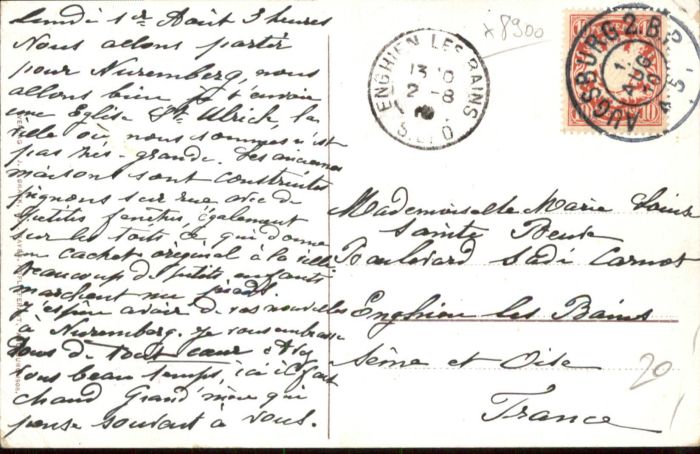 Lundi 1er Août 3 heures
Nous allons partir
pour Nuremberg, nous
allons bien je t'envoie
une Eglise St Ulrich, la
ville où nous sommes n'est
pas très-grande. Les anciennes
maisons sont construites
pignons sur rue avec de
petites fenêtres, également
sur les toits ce qui donne
un cachet original à la ville
Beaucoup de petits enfants
marchent nu pieds.
J'espère avoir de vos nouvelles
à Nuremberg. Je vous embrasse
tous de tout cœur
beau temps, ici il fait
chaud Grand'mère qui
pense souvent à vous.
x8900
ENGHIEN LES BAINS
13 10
2-8
10
S. ET O.
AUGSBURG 2.B.P.
1
AUG
10
4-5
10
Mademoiselle Marie Louise
Sainte Beuve
Boulevard Sadi Carnot
Enghien les Bains
Seine et Oise
France
20